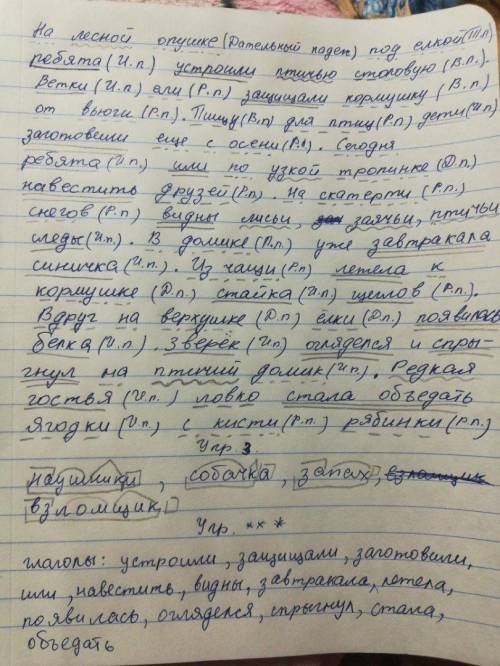 На лесной опушке (Дательный падеж) под елкой (Т.п)
ребята (И.п.) устроили птичью столовую (В.п.).
Ветки (И.п) ели (Р.п) защищали кормушку (В.п)
от вьюги (Р.п). Пищу (В.п) для птиц (Р.п) дети (И.п)
заготовили еще с осени (Р.п). Сегодня
ребята (И.п) шли по узкой тропинке (Д.п)
навестить друзей (Р.п). На скатерти (Р.п.)
снегов (Р.п) видны лисьи, заячьи, птичьи
следы (И.п). В домике (П.п) уже завтракала
синичка (И.п). Из чащи (Р.п) летела к
кормушке (Д.п) стайка (И.п) щеглов (Р.п.).
Вдруг на верхушке (Д.п) ёлки (Д.п) появилась
белка (И.п). Зверёк (И.п) огляделся и спры-
гнул на птичий домик (И.п). Редкая
гостья (И.п.) ловко стала объедать
ягодки (И.п) с кисти (Р.п.) рябинки (Р.п.)
Упр. 3.
наушники, собачка, запах, взломщик
взломщик
Упр. ***
глаголы: устроили, защищали, заготовили,
шли, навестить, видны, завтракала, летела,
появилась, огляделся, спрыгнул, стала,
объедать